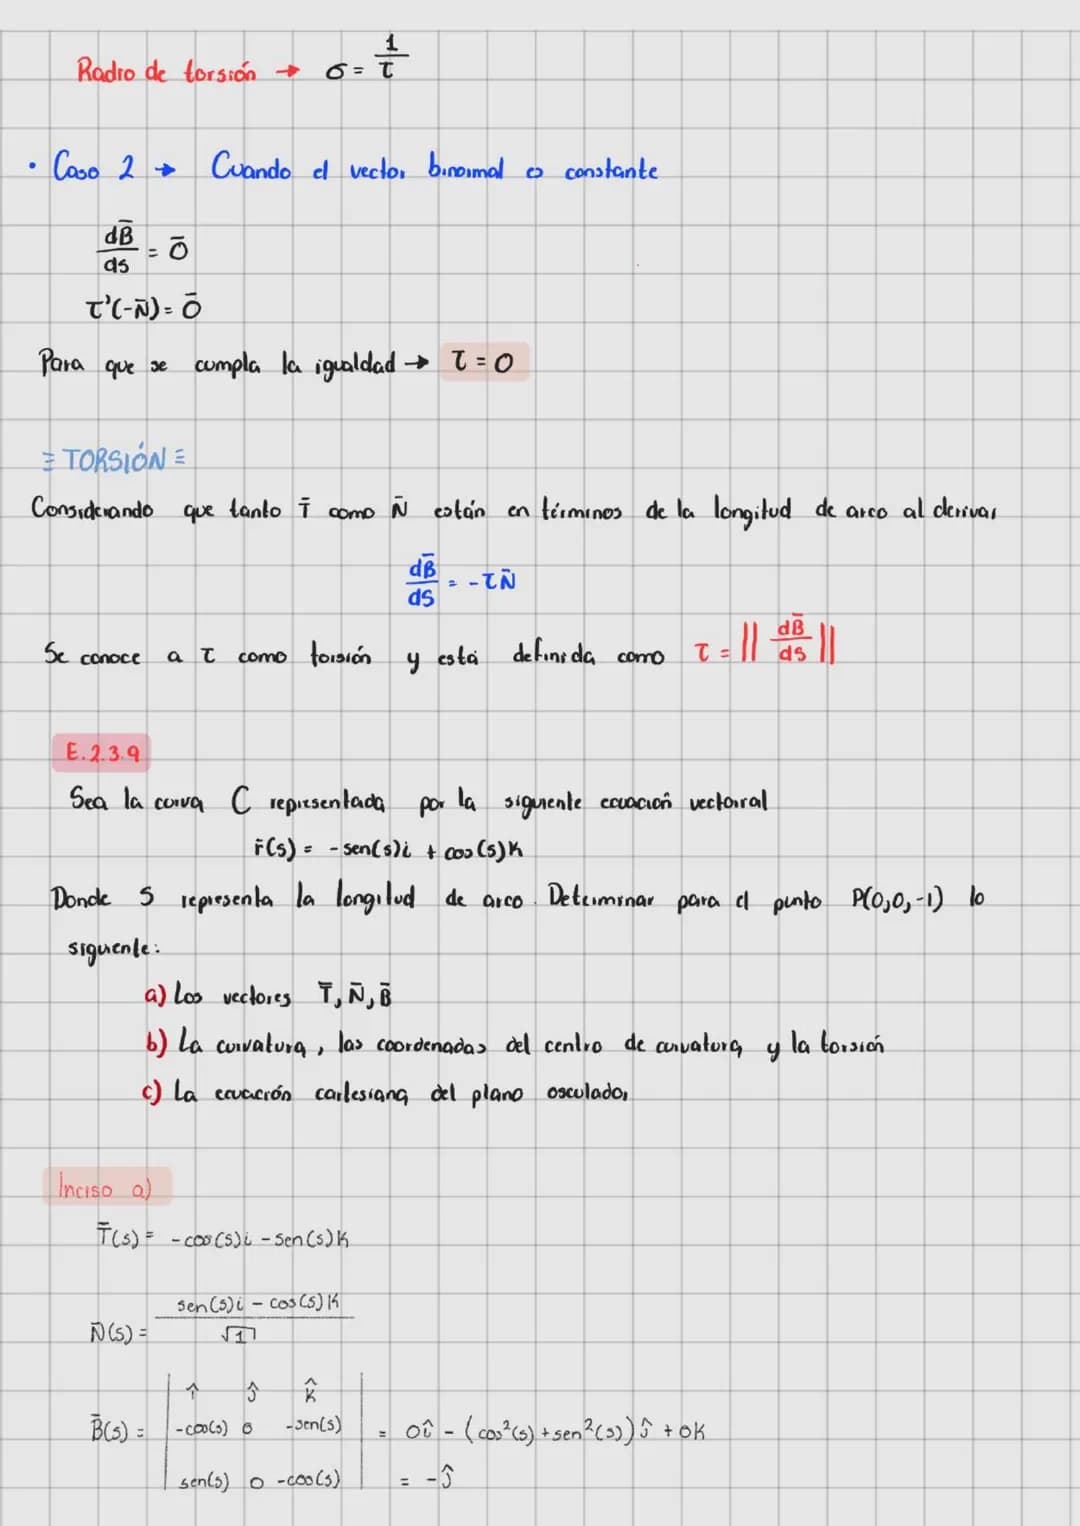 Radio de torsión → σ = 1/τ
• Caso 2 → Cuando el vector binormal es constante
dB̄/ds = Ō
τ'(-N̄) = Ō
Para que se cumpla la igualdad → τ = 0
≡ TORSIÓN ≡
Considerando que tanto T̄ como N̄ están en términos de la longitud de arco al derivar
dB̄/ds = -τN̄
Se conoce a τ como torsión y está definida como τ = || dB̄/ds ||
E.2.3.9
Sea la curva C representada por la siguiente ecuación vectorial
r̄(s) = -sen(s)i + cos(s)k
Donde S representa la longitud de arco. Determinar para el punto P(0,0,-1) lo
siguiente:
a) Los vectores T̄, N̄, B̄
b) La curvatura, las coordenadas del centro de curvatura y la torsión
c) La ecuación cartesiana del plano osculador
Inciso a)
T̄(s) = -cos(s)i - sen(s)k
N̄(s) = sen(s)i - cos(s)k / √1
B̄(s) = | î ĵ k̂ |
| -cos(s) 0 -sen(s) | = 0î - (cos²(s) + sen²(s))ĵ + 0k
| sen(s) 0 -cos(s) | = -ĵ